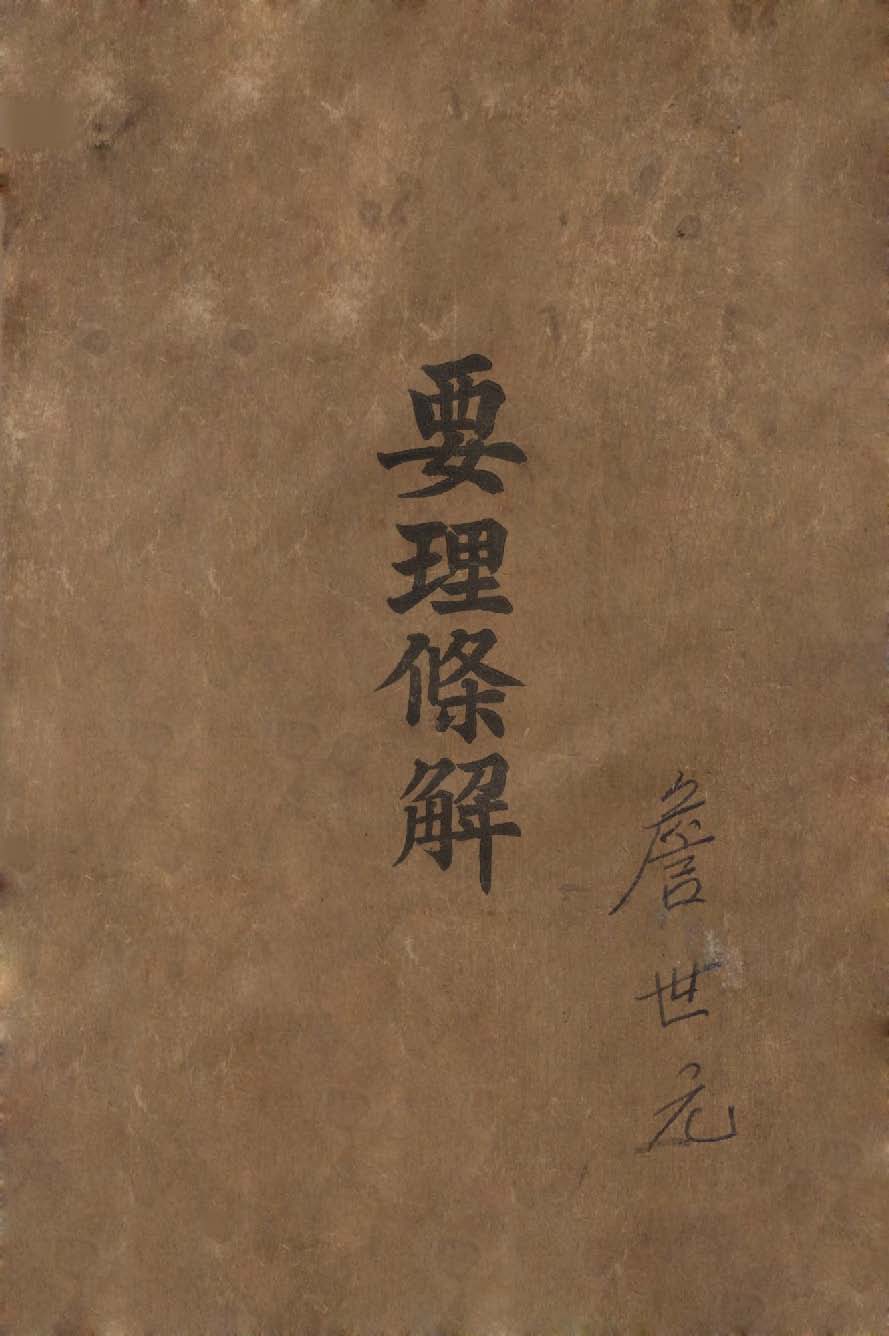 要理條解
詹世元